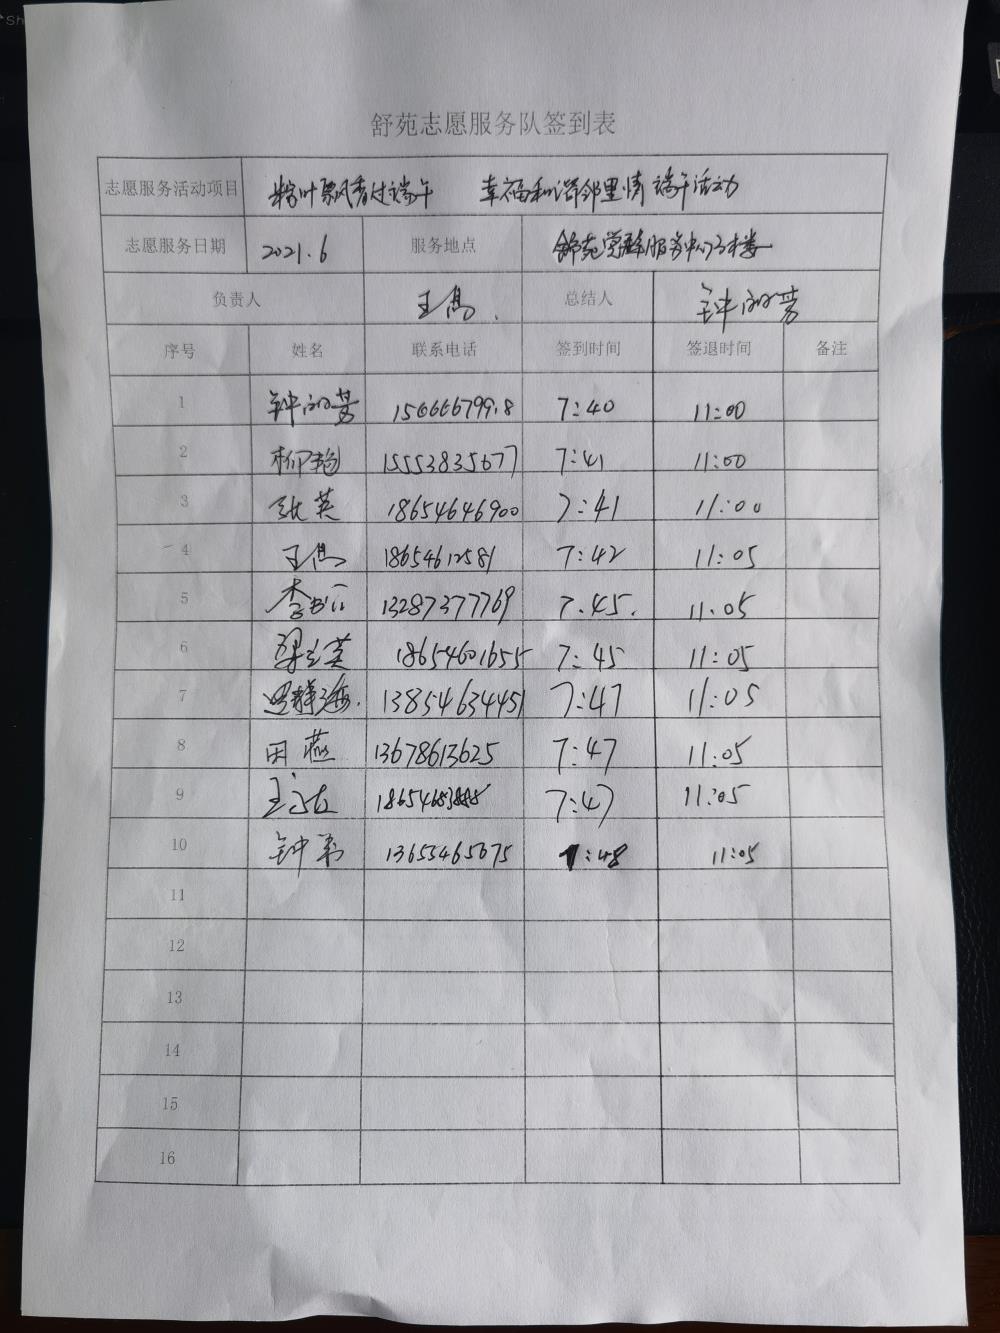 舒苑志愿服务队签到表
志愿服务活动项目 粽叶飘香过端午 幸福和谐邻里情 端午活动
志愿服务日期 2021.6 服务地点 舒苑党群服务中心3楼
负责人 王 总结人 钟 芳
序号 姓名 联系电话 签到时间 签退时间 备注
1 钟 芳 15666679918 7:40 11:00
2 柳艳 15553835677 7:41 11:00
3 张英 18654646900 7:41 11:00
4 王 18654612581 7:42 11:05
5 李 13287377769 7.45. 11:05
6 梁 英 18654601655 7:45 11:05
7 13854634451 7:47 11:05
8 田燕 13678613625 7:47 11:05
9 王 7:47 11:05
10 钟 13655465675 7:48 11:05
11
12
13
14
15
16